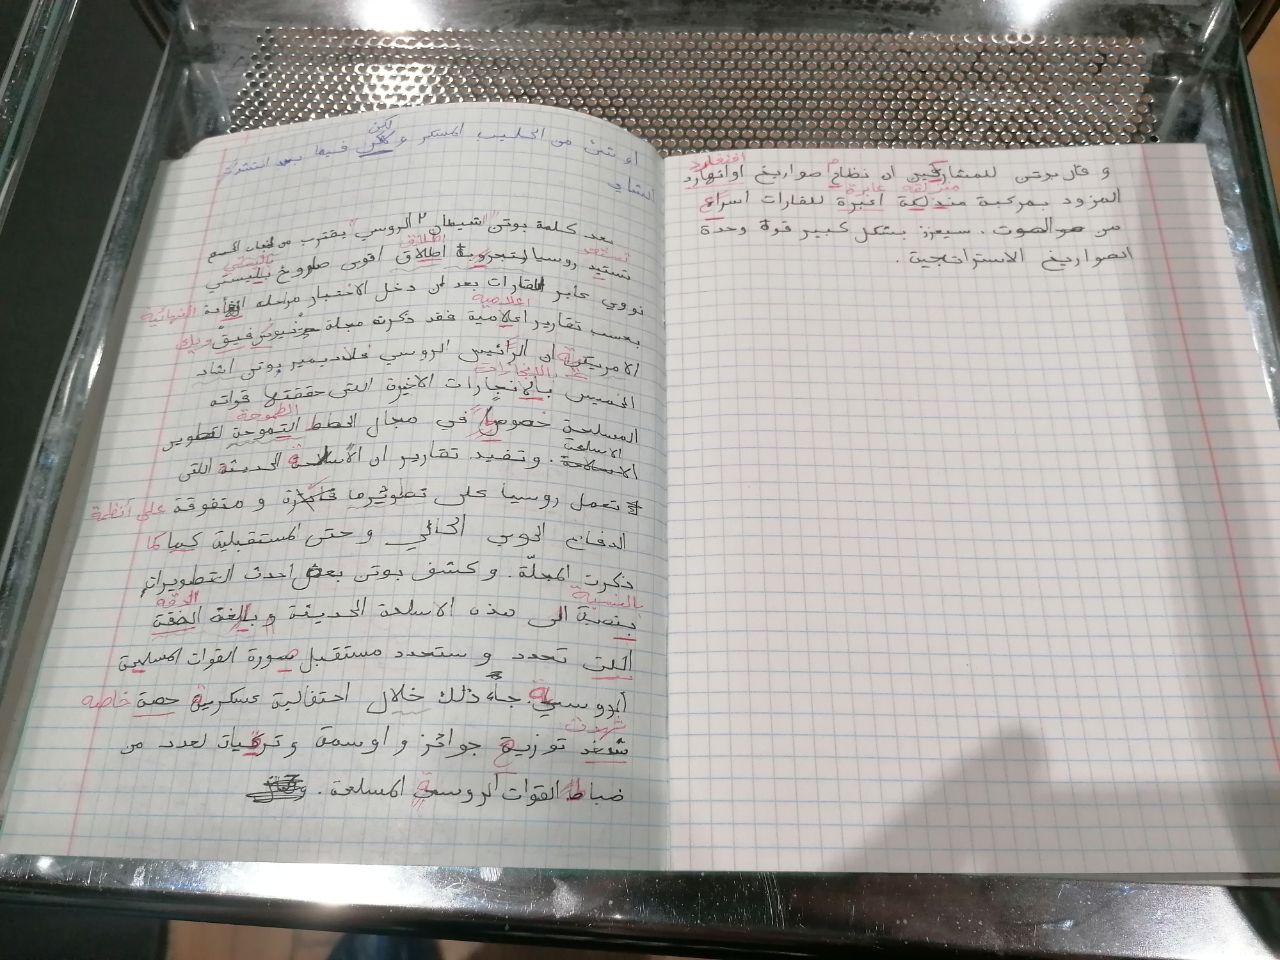 او شئ من الحليب المسكر و لكن فيما بعد انتشرت
الشاي
بعد كلمة بوتن "شيطان ٢" الروسي يقترب من
تستعد
تستيد روسيا لتجروبة اطلاق اقوى صاروخ بليستي
اطلاق
بالیستي
نووي عابر القارات بعد ان دخل الاختبار مرحله
النهائية
بحسب تقارير اعلامية فقد ذكرت مجلة
اعلامية
ويك
الامريكية ان الرائيس الروسي فلاديمير بوتن اشاد
الخميس بالانجارات الاخيرة التى حققتها قواته
بالانجازات
المسلحة خصوصا في مجال الخطط التموحة لتطوير
الطموحة
الاسلحة
الاسلاحة. وتفيد تقارير ان الأسلحة الحديثة اللتى
تعمل روسيا على تطويرها قادرة و متفوقة على أنظمة
الدفاع الجوي الحالي و حتى المستقبلية كيما كما
ذكرت المجلّة. و كشف بوتن بعض احدث التطويرات
بالنسبة
بنسبة الى هذه الاسلحة الحديثة و بالغة الضقة
الدقه
اللت تحدد و ستحدد مستقبل صورة القوات المسليحة
الرووسية. جاء ذلك خلال احتفالية عسكرية حصة خاصه
شهدت
شهد توزيع جوائز و اوسمة و ترقيات لعدد من
ضباط القوات الروسية المسلحة.
و قال بوتن للمشاركين ان نظام صواريخ اوانهارد
افنغارد
المزود بمركبة مندلكة اعبرة للقارات اسراع
منزلقه
عابرة
من الصوت. سيعزز بشكل كبير قوة وحدة
الصواريخ الاستراتجية.